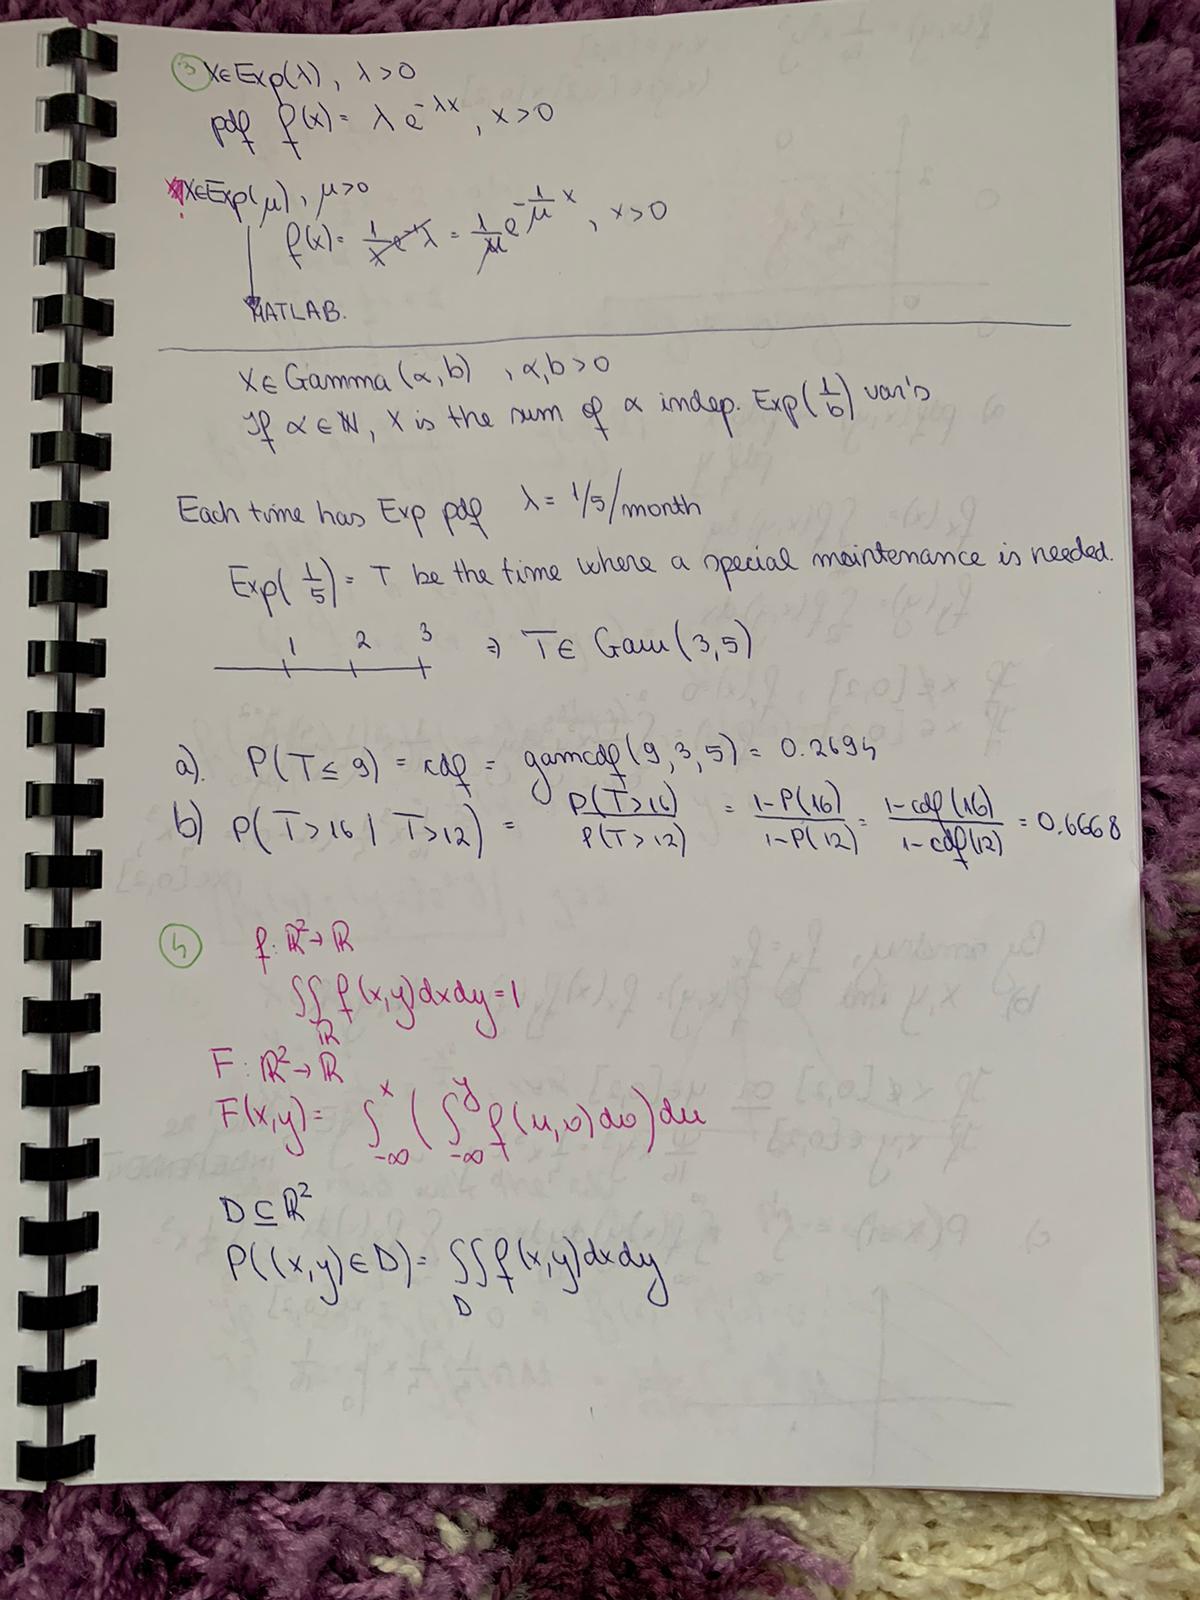 ③ X∈Exp(λ), λ>0
pdf f(x) = λe^{-λx}, x>0
X∈Exp(μ), μ>0
f(x) = = 1/μ e^{-1/μ x}, x>0
MATLAB.
X∈Gamma(α,b), α,b>0
If α∈ℕ, X is the sum of α indep. Exp(1/b) var's
Each time has Exp pdf λ = 1/5/month
Exp(1/5) = T be the time where a special maintenance is needed.
1 2 3 ⇒ T∈ Gam(3,5)
a). P(T≤9) = cdf = gamcdf(9,3,5) = 0.2694
b) P(T>16 | T>12) = P(T>16)/P(T>12) = 1-P(16)/1-P(12) = 1-cdf(16)/1-cdf(12) = 0.6668
④ f: ℝ²→ℝ
∬_ℝ f(x,y)dxdy=1
F: ℝ²→ℝ
F(x,y) = ∫_{-∞}^{x} (∫_{-∞}^{y} f(u,v)dv)du
D⊆ℝ²
P((x,y)∈D) = ∬_D f(x,y)dxdy